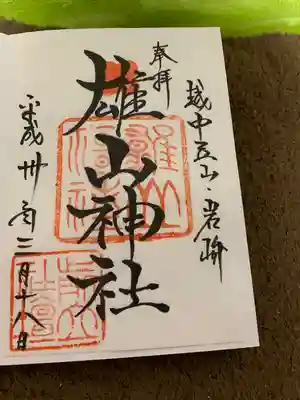 越中立山・岩峅
奉拝
雄山神社
平成卅年三月十八日